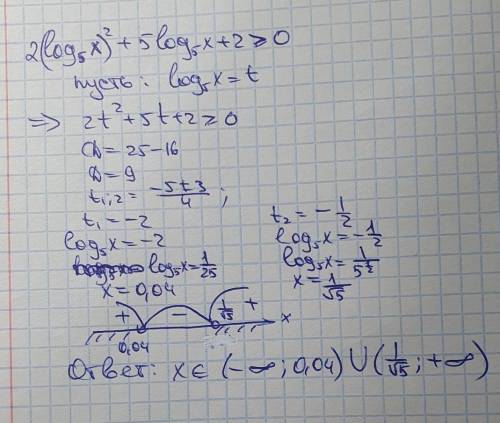 2(log₅x)² + 5log₅x + 2 ≥ 0
пусть: log₅x = t
⇒ 2t² + 5t + 2 ≥ 0
D = 25 - 16
D = 9
t₁,₂ = (-5±3)/4 ;
t₁ = -2
log₅x = -2
log₅x = 1/25
x = 0,04
t₂ = -1/2
log₅x = -1/2
log₅x = 1/5^(1/2)
x = 1/√5
+ − 1/√5 + x
0,04
Ответ: x ∈ (-∞; 0,04) ∪ (1/√5; +∞)